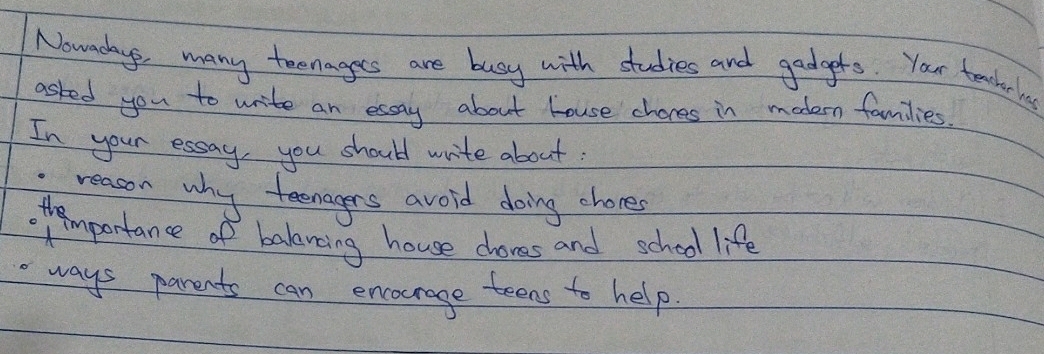 Nowadays, many teenagers are busy with studies and gadgets. Your teacher has
asked you to write an essay about house chores in modern families.
In your essay, you should write about :
• reason why teenagers avoid doing chores
• the importance of balancing house chores and school life
• ways parents can encourage teens to help.